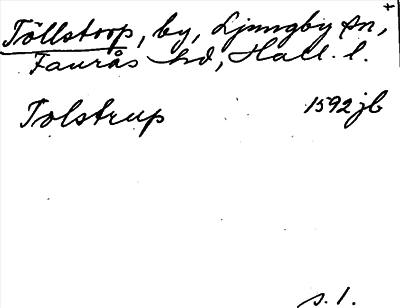 Töllstorp, by, Ljungby sn,
Faurås hd, Hall. l.
Tolstrup 1592 jb
s. 1.